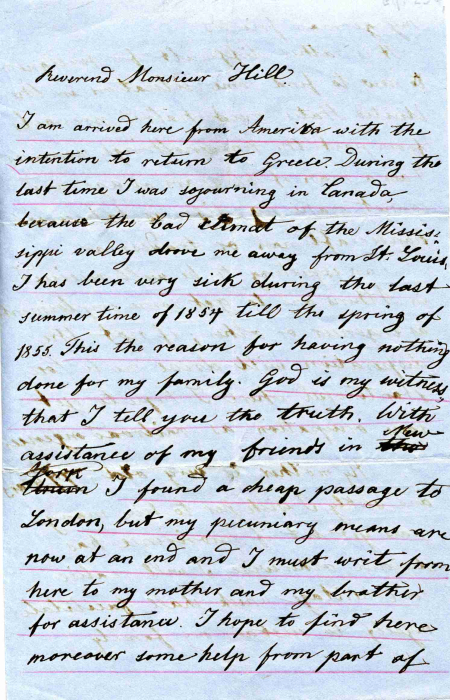 Reverend Monsieur Hill.
I am arrived here from Amerika with the
intention to return to Greece. During the
last time I was sojourning in Canada,
because the bad climat of the Missis-
sippi valley drove me away from St. Louis,
I has been very sick during the last
summer time of 1854 till the spring of
1855. This the reason for having nothing
done for my family. God is my witness,
that I tell you the truth. With
assistance of my friends in New
York I found a cheap passage to
London, but my pecuniary means are
now at an end and I must writ from
here to my mother and my brother
for assistance. I hope to find here
moreover some help from part of